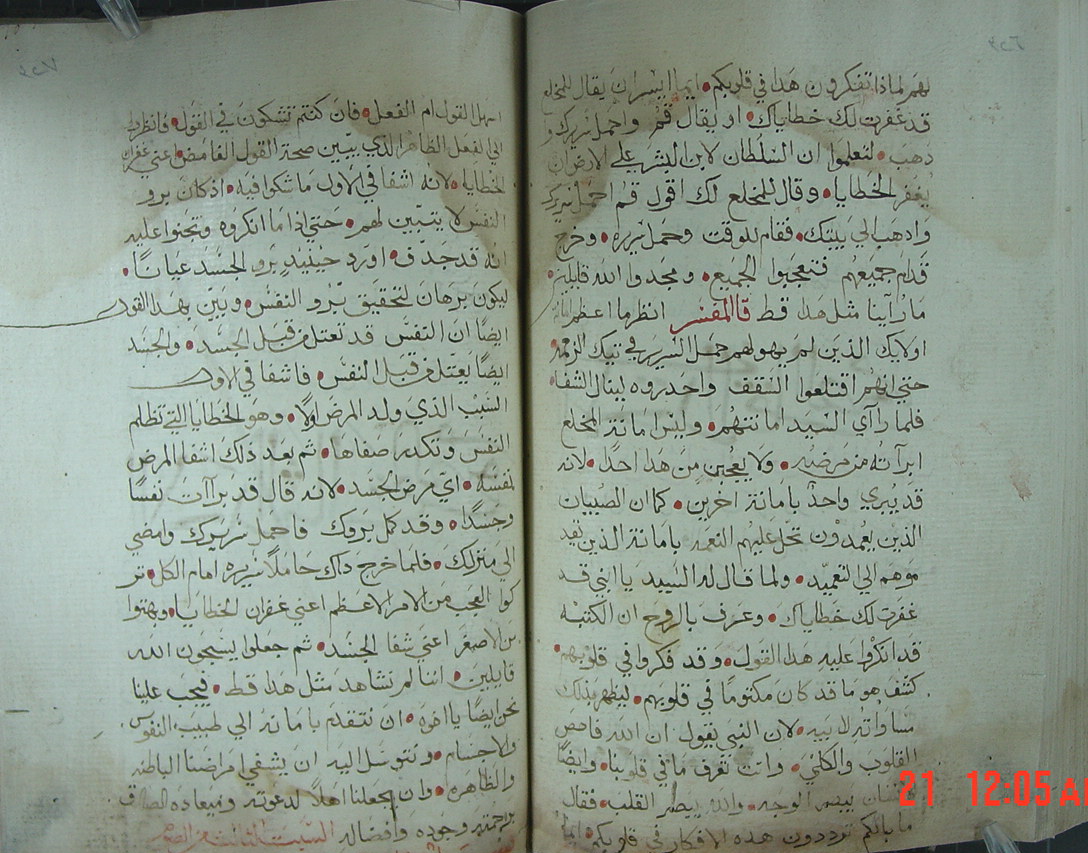 لهم لماذا تفكرون هذا في قلوبكم ايما ايسر ان يقال للمخلع
قد غفرت لك خطاياك او يقال قم واحمل سريرك و
ذهب لتعلموا ان السلطان لابن البشر على الارض ان
يغفر الخطايا وقال للمخلع لك اقول قم احمل سريرك
واذهب الي بيتك فقام للوقت وحمل سريره وخرج
قدام جميعهم فتعجبوا الجميع ومجدوا الله قايلين
ما راينا مثل هذا قط قال المفسر انظر ما اعظم
اولايك الذين لم يهولهم حمل السرير في تيك الزحمه
حتي انهم اقتلعوا السقف واحدروه لينال الشفا
فلما رآي السيد امانتهم وليس امانة المخلع
ابرآته من مرضه ولا يعجبن من هذا احدا لانه
قد يبري واحد بامانة اخرين كما ان الصبيان
الذين يعمدون تحل عليهم النعمه بامانة الذين يقد
موهم الي التعميد ولما قال له السيد يا ابني قد
غفرت لك خطاياك وعرف بالروح ان الكتبه
قد انكروا عليه هذا القول وقد فكروا في قلوبهم
كشف هو ما قد كان مكتوما في قلوبهم ليظهر بذلك
مساواته لابيه لان النبي يقول ان الله فاحص
القلوب والكلي وانت تعرف ما في قلوبنا وايضا
الانسان يبصر الوجه والله ينظر القلب فقال
ما بالكم ترددون هذه الافكار في قلوبكم ايما
اسهل القول ام الفعل فان كنتم تشكون في القول فانظروا
الي الفعل الظاهر الذي يبين صحة القول الغامض اعني غفران
الخطايا لانه اشفا في الاول ما شكوا فيه اذ كان برو
النفس لا يتبين لهم حتي اذا ما انكروه وتجنوا عليه
انه قد جدف اورد حينيذ برو الجسد عيانا
ليكون برهان لتحقيق برو النفس وبين بهذا القول
ايضا ان النفس قد تعتل من قبل الجسد والجسد
ايضا يعتل من قبل النفس فاشفا في الاول
السبب الذي ولد المرض اولا وهو الخطايا التي تظلم
النفس وتكدر صفاها ثم بعد ذلك اشفا المرض
نفسه اي مرض الجسد لانه قال قد برآت نفسا
وجسدا وقد كمل بروك فاحمل سريرك وامضي
الي منزلك فلما خرج ذاك حاملا سريره امام الكل تر
كوا العجب من الامر الاعظم اعني غفران الخطايا وبهتوا
من الاصغر اعني شفا الجسد ثم جعلوا يسبحون الله
قايلين اننا لم نشاهد مثل هذا قط فيجب علينا
نحن ايضا يا اخوه ان نتقدم بامانة الي طبيب النفوس
والاجسام ونتوسل اليه ان يشفي امراضنا الباطنه
والظاهره وان يجعلنا اهلا لدعوته وميعاده الصادق
برحمته وجوده وافضاله السبت الثالث من الصوم
21 12:05 A